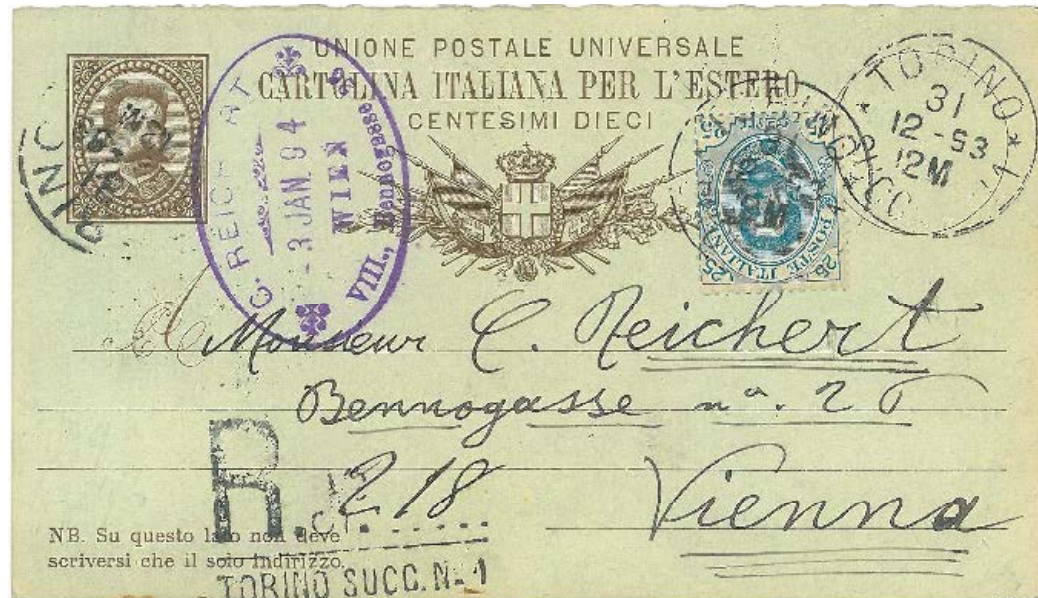 UNIONE POSTALE UNIVERSALE
CARTOLINA ITALIANA PER L'ESTERO
CENTESIMI DIECI
C. REICH RT
- 3 JAN. 94
WIEN
VIII., Bennogasse
TORINO
31
12 - 93
12M
25 25
POSTE ITALIANE
25 25
Monsieur C. Reichert
Bennogasse nº. 2
Vienna
R. 218
TORINO SUCC. N. 1
NB. Su questo lato non deve
scriversi che il solo indirizzo.